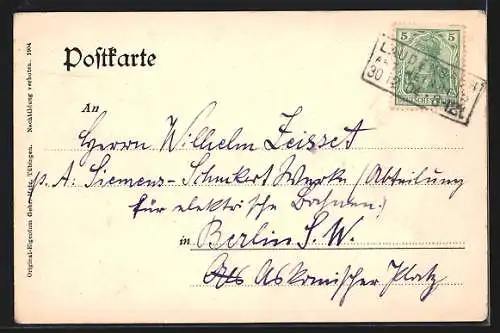 Postkarte
5 5
An
Herrn Wilhelm Zeisset
p. A. Siemens-Schuckert Werke (Abteilung
für elektrische Bahnen)
in Berlin S. W.
Askanischer Platz
Original-Eigentum Gebr. Metz, Tübingen. Nachbildung verboten. 1904